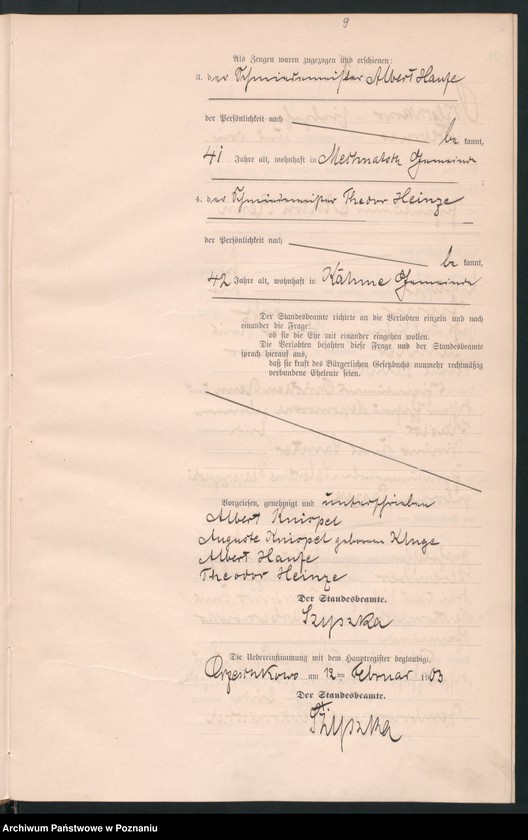 9
Als Zeugen waren zugezogen und erschienen:
3. der Schmiedemeister Albert Haufe
der Persönlichkeit nach
be kannt,
41 Jahre alt, wohnhaft in Mechnatsch Gemeinde
4. der Schmiedemeister Theodor Heinze
der Persönlichkeit nach
be kannt,
42 Jahre alt, wohnhaft in Kähme Gemeinde
Der Standesbeamte richtete an die Verlobten einzeln und nach
einander die Frage:
ob sie die Ehe mit einander eingehen wollen.
Die Verlobten bejahten diese Frage und der Standesbeamte
sprach hierauf aus,
daß sie kraft des Bürgerlichen Gesetzbuchs nunmehr rechtmäßig
verbundene Eheleute seien.
Vorgelesen, genehmigt und unterschrieben
Albert Knispel
Auguste Knispel geborene Kluge
Albert Haufe
Theodor Heinze
Der Standesbeamte.
Szyszka
Die Uebereinstimmung mit dem Hauptregister beglaubigt.
Orzeszkowo am 12ten Februar 1903
Der Standesbeamte.
Szyszka
Archiwum Państwowe w Poznaniu